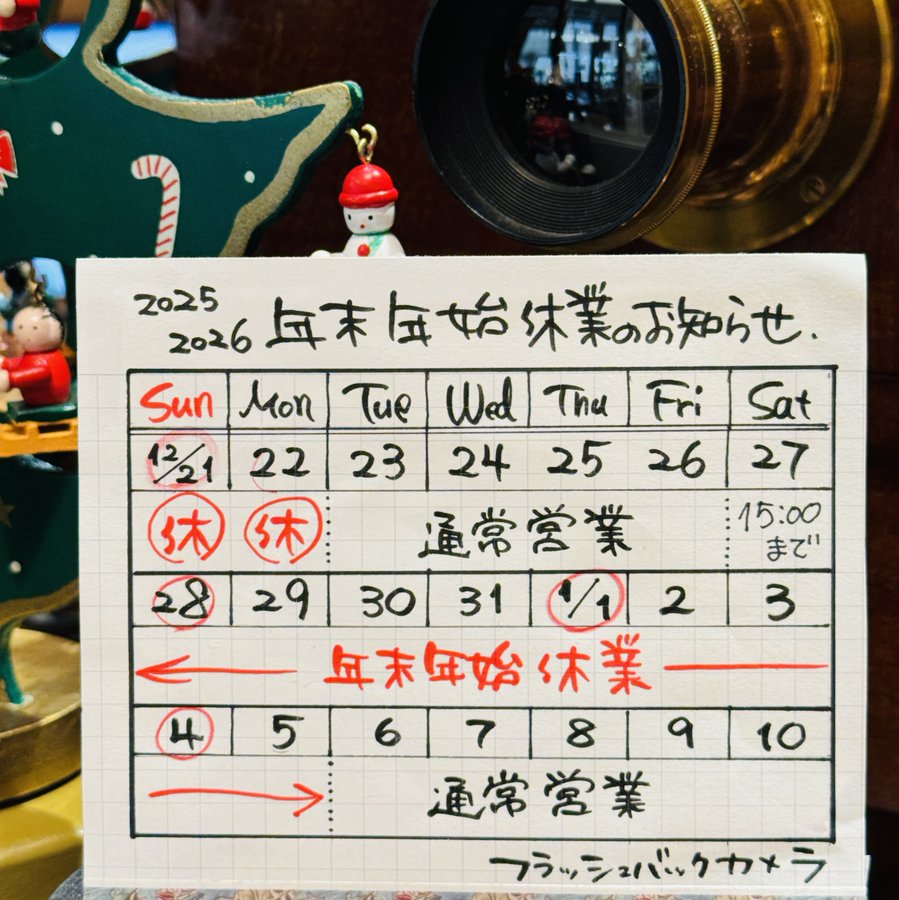 2025
2026 年末年始休業のお知らせ.
Sun Mon Tue Wed Thu Fri Sat
12/21 22 23 24 25 26 27
休 休 通常営業 15:00
まで
28 29 30 31 1/1 2 3
年末年始休業
4 5 6 7 8 9 10
通常営業
フラッシュバックカメラ